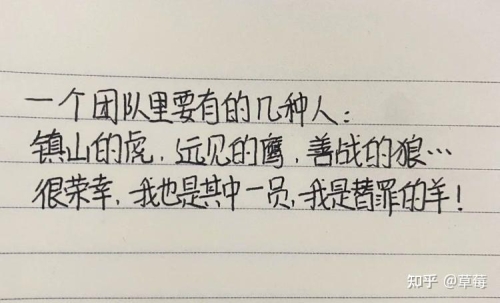 一个团队里要有的几种人:
镇山的虎,远见的鹰,善战的狼…
很荣幸,我也是其中一员,我是替罪的羊!
知乎 @草莓